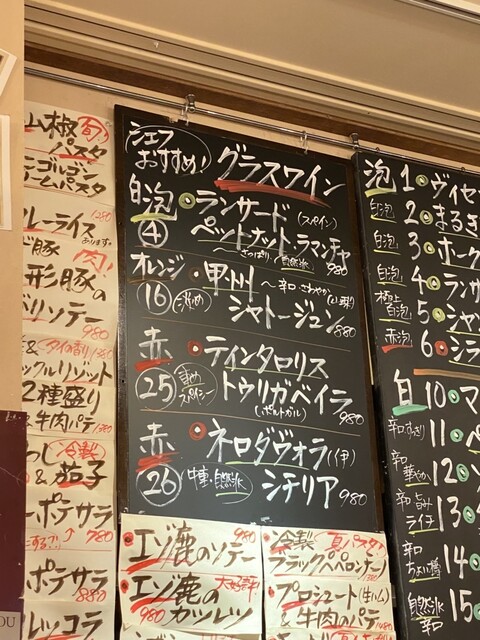 シェフ
おすすめ!
グラスワイン
白泡 ランサード (スペイン)
④ ペットナット・ラマンチャ
〜さっぱり/自然派 980
オレンジ 甲州 〜辛口・さわやか(山梨)
⑯ シャトージュン 880
赤 ティンタロリス
㉕ スパイシー トゥリガベイラ
(ポルトガル) 980
赤 ネロダヴォラ(伊)
㉖ 中重・自然派 シチリア 980
エゾ鹿のソテー 980
エゾ鹿の 大好評
980 カツレツ
冷製 夏パスタ
ブラックペペロンチーノ
プロシュート(生ハム)
&牛肉のパテ
山椒 旬
パスタ
ゴルゴン
ームパスタ
レーライス 1280
あります。
豚 肉!
形豚の
ソテー
980
タイの香り
ックルリゾット
2種盛り
&牛肉パテ
冷製
&茄子
ーポテサラ
780
ポテサラ
880
レッコラ
OU
泡 1 ヴィセ
白泡 2 まるき
白泡 3 ホーク
白泡 4 ランサ
極上白泡 5 シャ
赤泡 6 シラ
白 10 マ
辛口すっきり 11 ペ
辛口華やか 12
辛口旨み ライチ 13
辛口ちょい樽 14
自然派 辛口 15